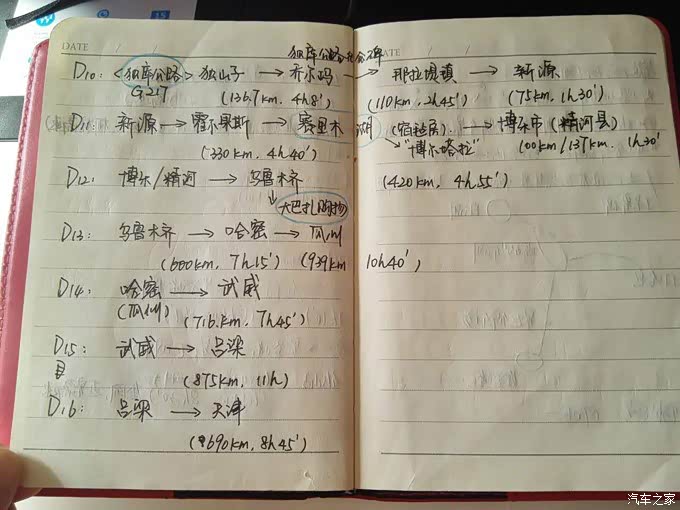 DATE / /
DATE
独库公路北分碑
D10: <独库公路> 独山子 → 乔尔玛 → 那拉提镇 → 新源
G217 (136.7km, 4h8') (110km, 2h45') (75km, 1h30')
D11: 新源 → 霍尔果斯 → 赛里木湖 (宿营后) → 博乐市 (精河县)
(330km, 4h40') "博尔塔拉" 100km/137km, 1h30'
D12: 博乐/精河 → 乌鲁木齐 (420km, 4h55')
↓大巴扎购物
D13: 乌鲁木齐 → 哈密 → 瓜州
(600km, 7h15') (939km 10h40')
D14: 哈密 → 武威
(瓜州) (716km, 7h45')
D15: 武威 → 吕梁
(875km, 11h)
D16: 吕梁 → 天津
(690km, 8h45')
汽车之家